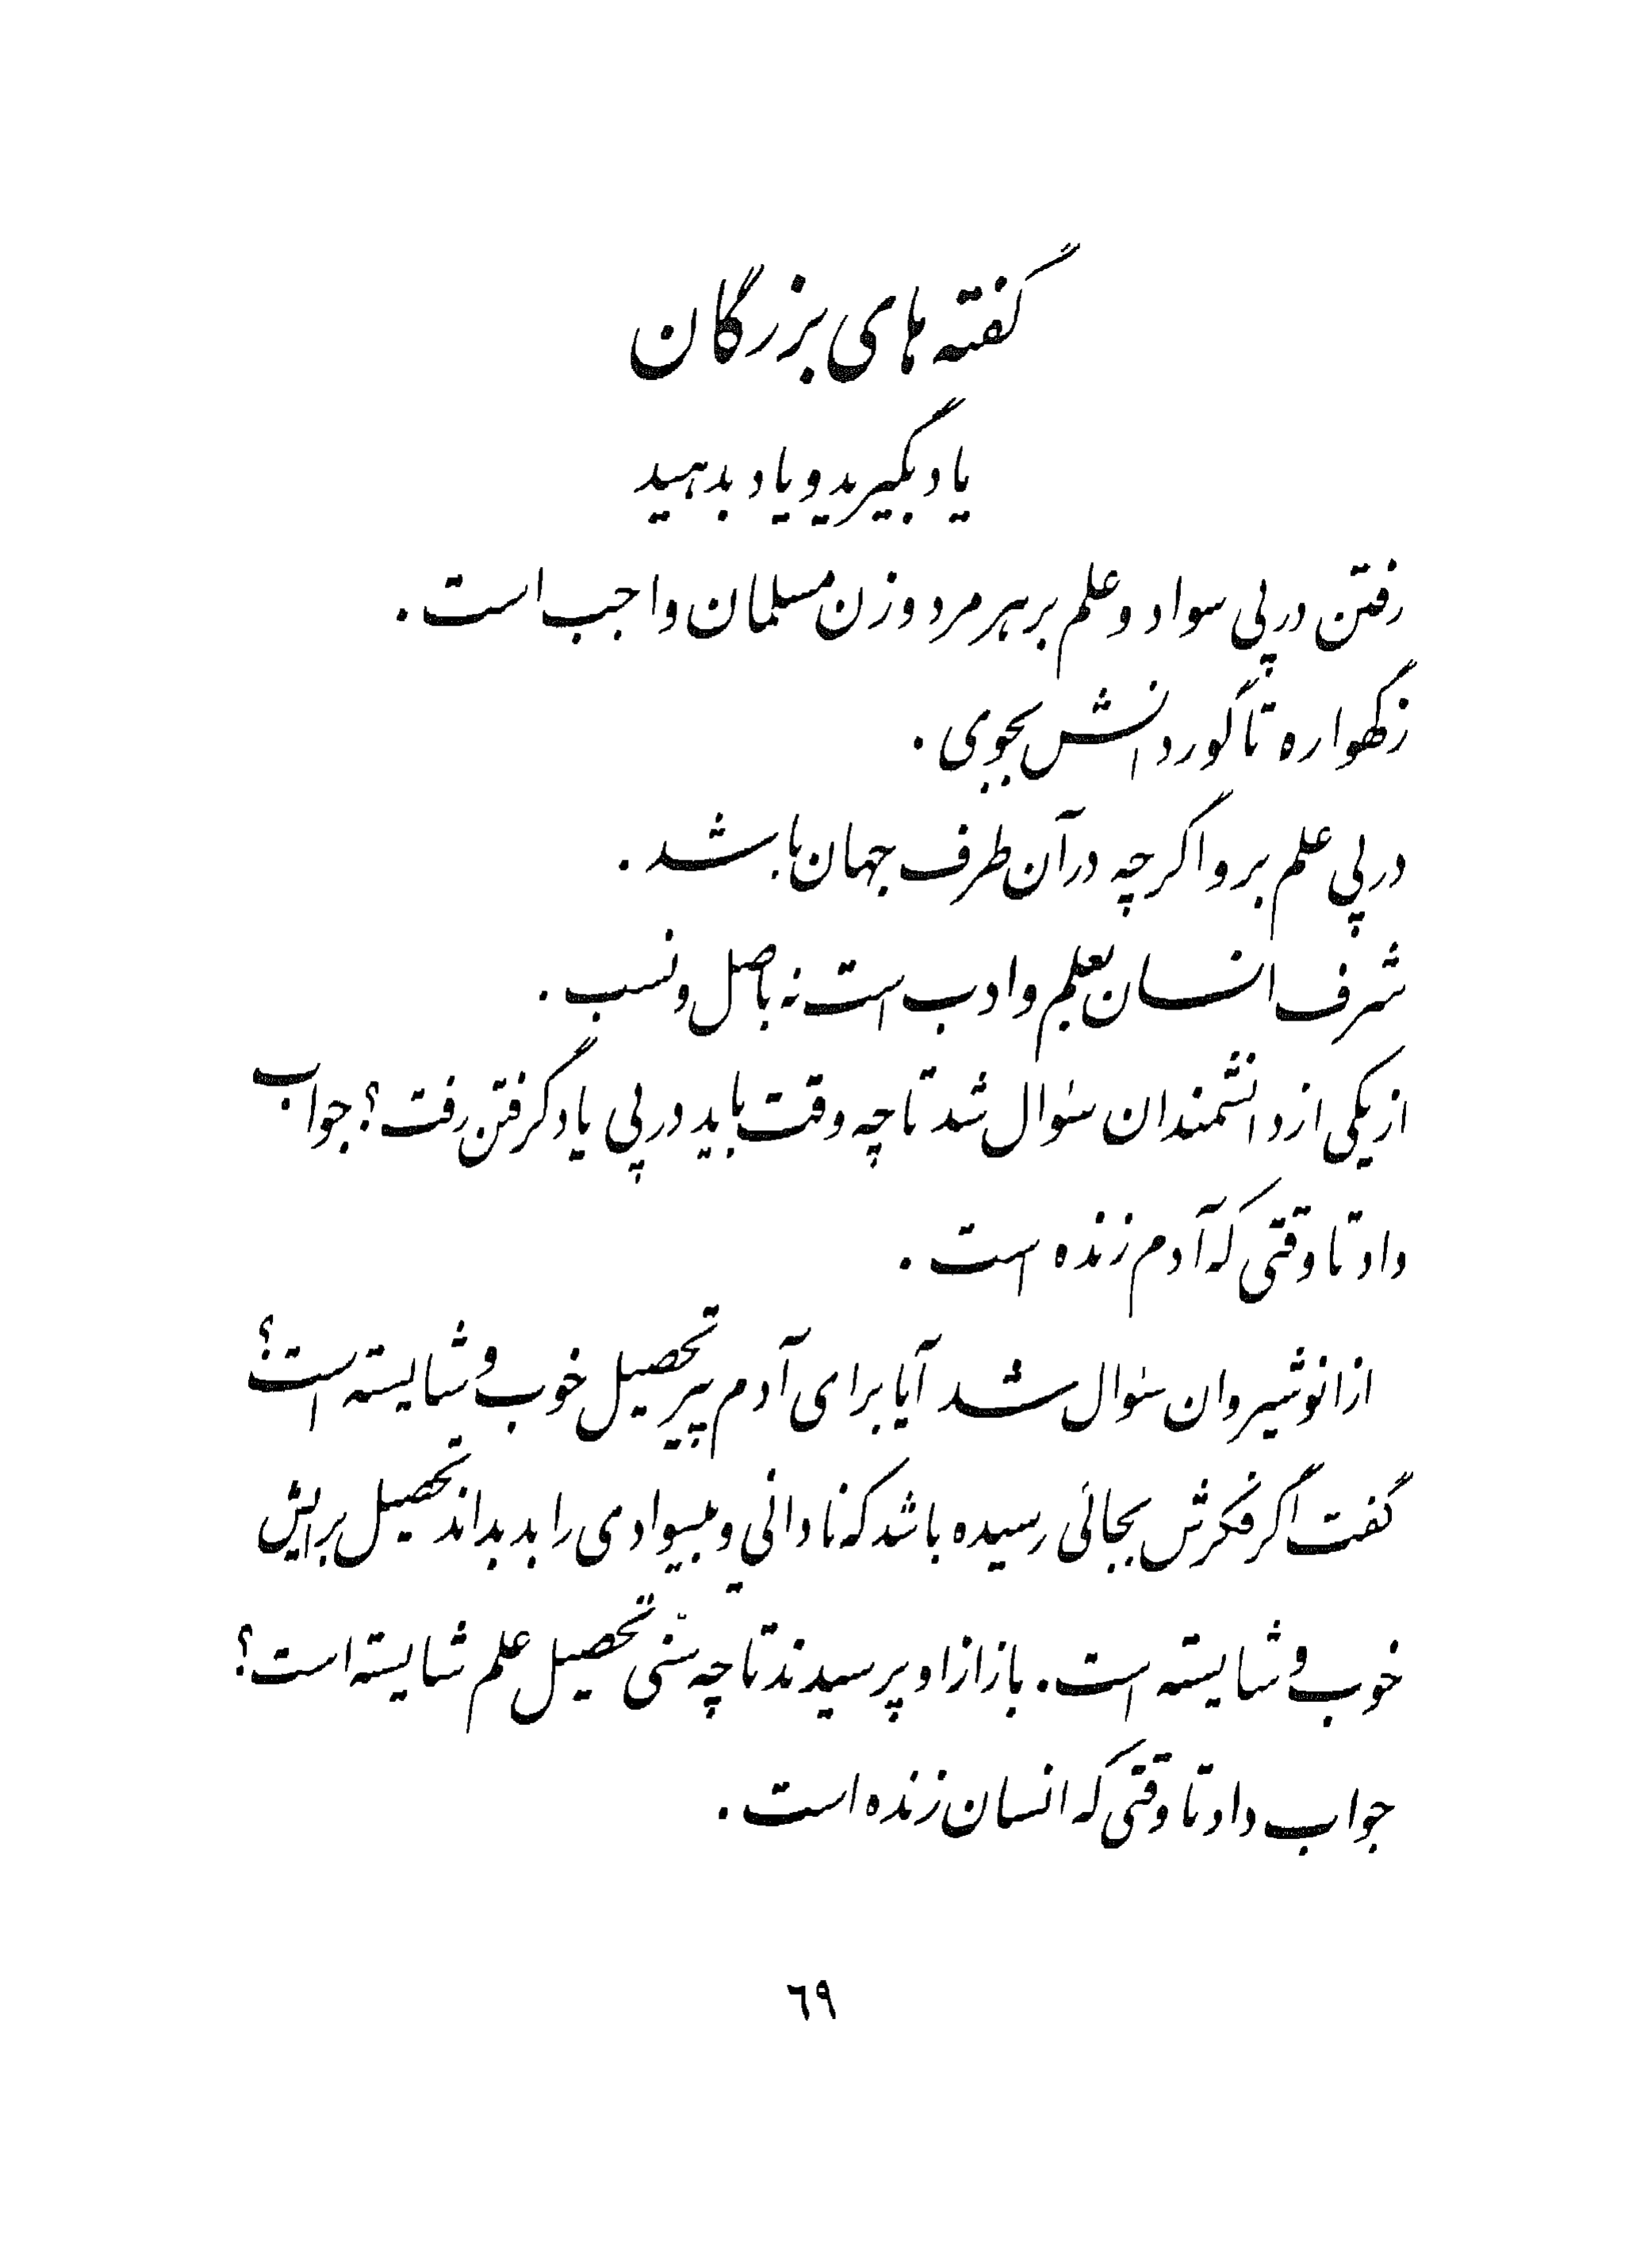 گفته های بزرگان
یاد بگیرید و یاد بدهید
رفتن در پی سواد و علم بر هر مرد و زن مسلمان واجب است .
زگهواره تا گور دانش بجوی .
در پی علم برو اگر چه در آن طرف جهان باشد .
شرف انسان بعلم و ادب است نه باصل و نسب .
از یکی از دانشمندان سئوال شد تا چه وقت باید در پی یاد گرفتن رفت ؟ جواب
داد تا وقتی که آدم زنده است .
از انوشیروان سئوال شد آیا برای آدم پیر تحصیل خوب و شایسته است ؟
گفت اگر فکرش بجائی رسیده باشد که نادانی و بیسوادی را بد بداند تحصیل برایش
خوب و شایسته است . باز از او پرسیدند تا چه سنّی تحصیل علم شایسته است ؟
جواب داد تا وقتی که انسان زنده است .
٦٩